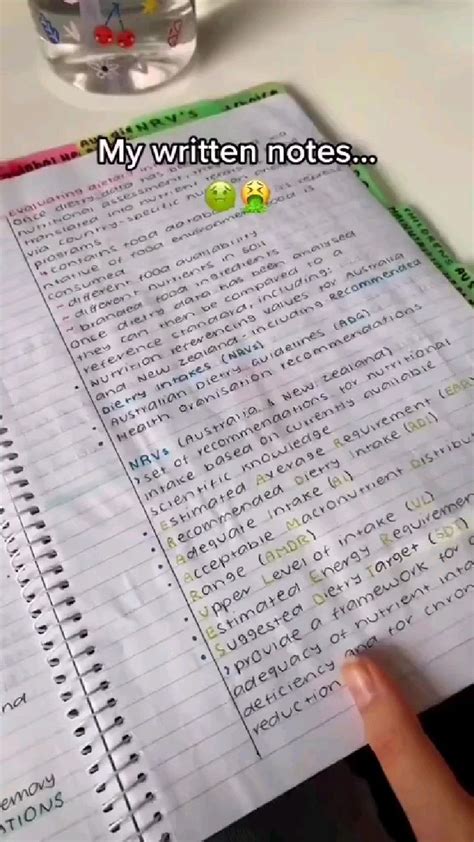 NRV's
My written notes...
Evaluating dietary in
once dietary data has be
nutritional assessment, th
translated into nutrient
via country-specific nut
programs
contains food databa
ntative of food environmen
consumed
- different food availability
- different nutrients in soil
- branded food ingredients
once dietry data has been analysed
they can then be compared to a
reference standard, including:
• Nutrition referencing values for Australia
and New Zealand - including Recommended
Dietry Intakes (NRVs)
• Australian Dietry Guidelines (ADG)
• Health Oranisation recommendations
NRVs (Australia & New Zealand)
> set of recommendations for nutritional
intake based on currently available
scientific knowledge
• Estimated Average Requirement (EAR)
• Recommended Dietry Intake (RDI)
• Adequate Intake (AI)
• Acceptable Macronutrient Distribut
Range (AMDR)
• Upper Level of intake (UL)
• Estimated Energy Requireme
• Suggested Dietry Target (SDT)
> provide a framework for
adequacy of nutrient inta
deficiency and for chron
reduction
nd
emory
ATIONS